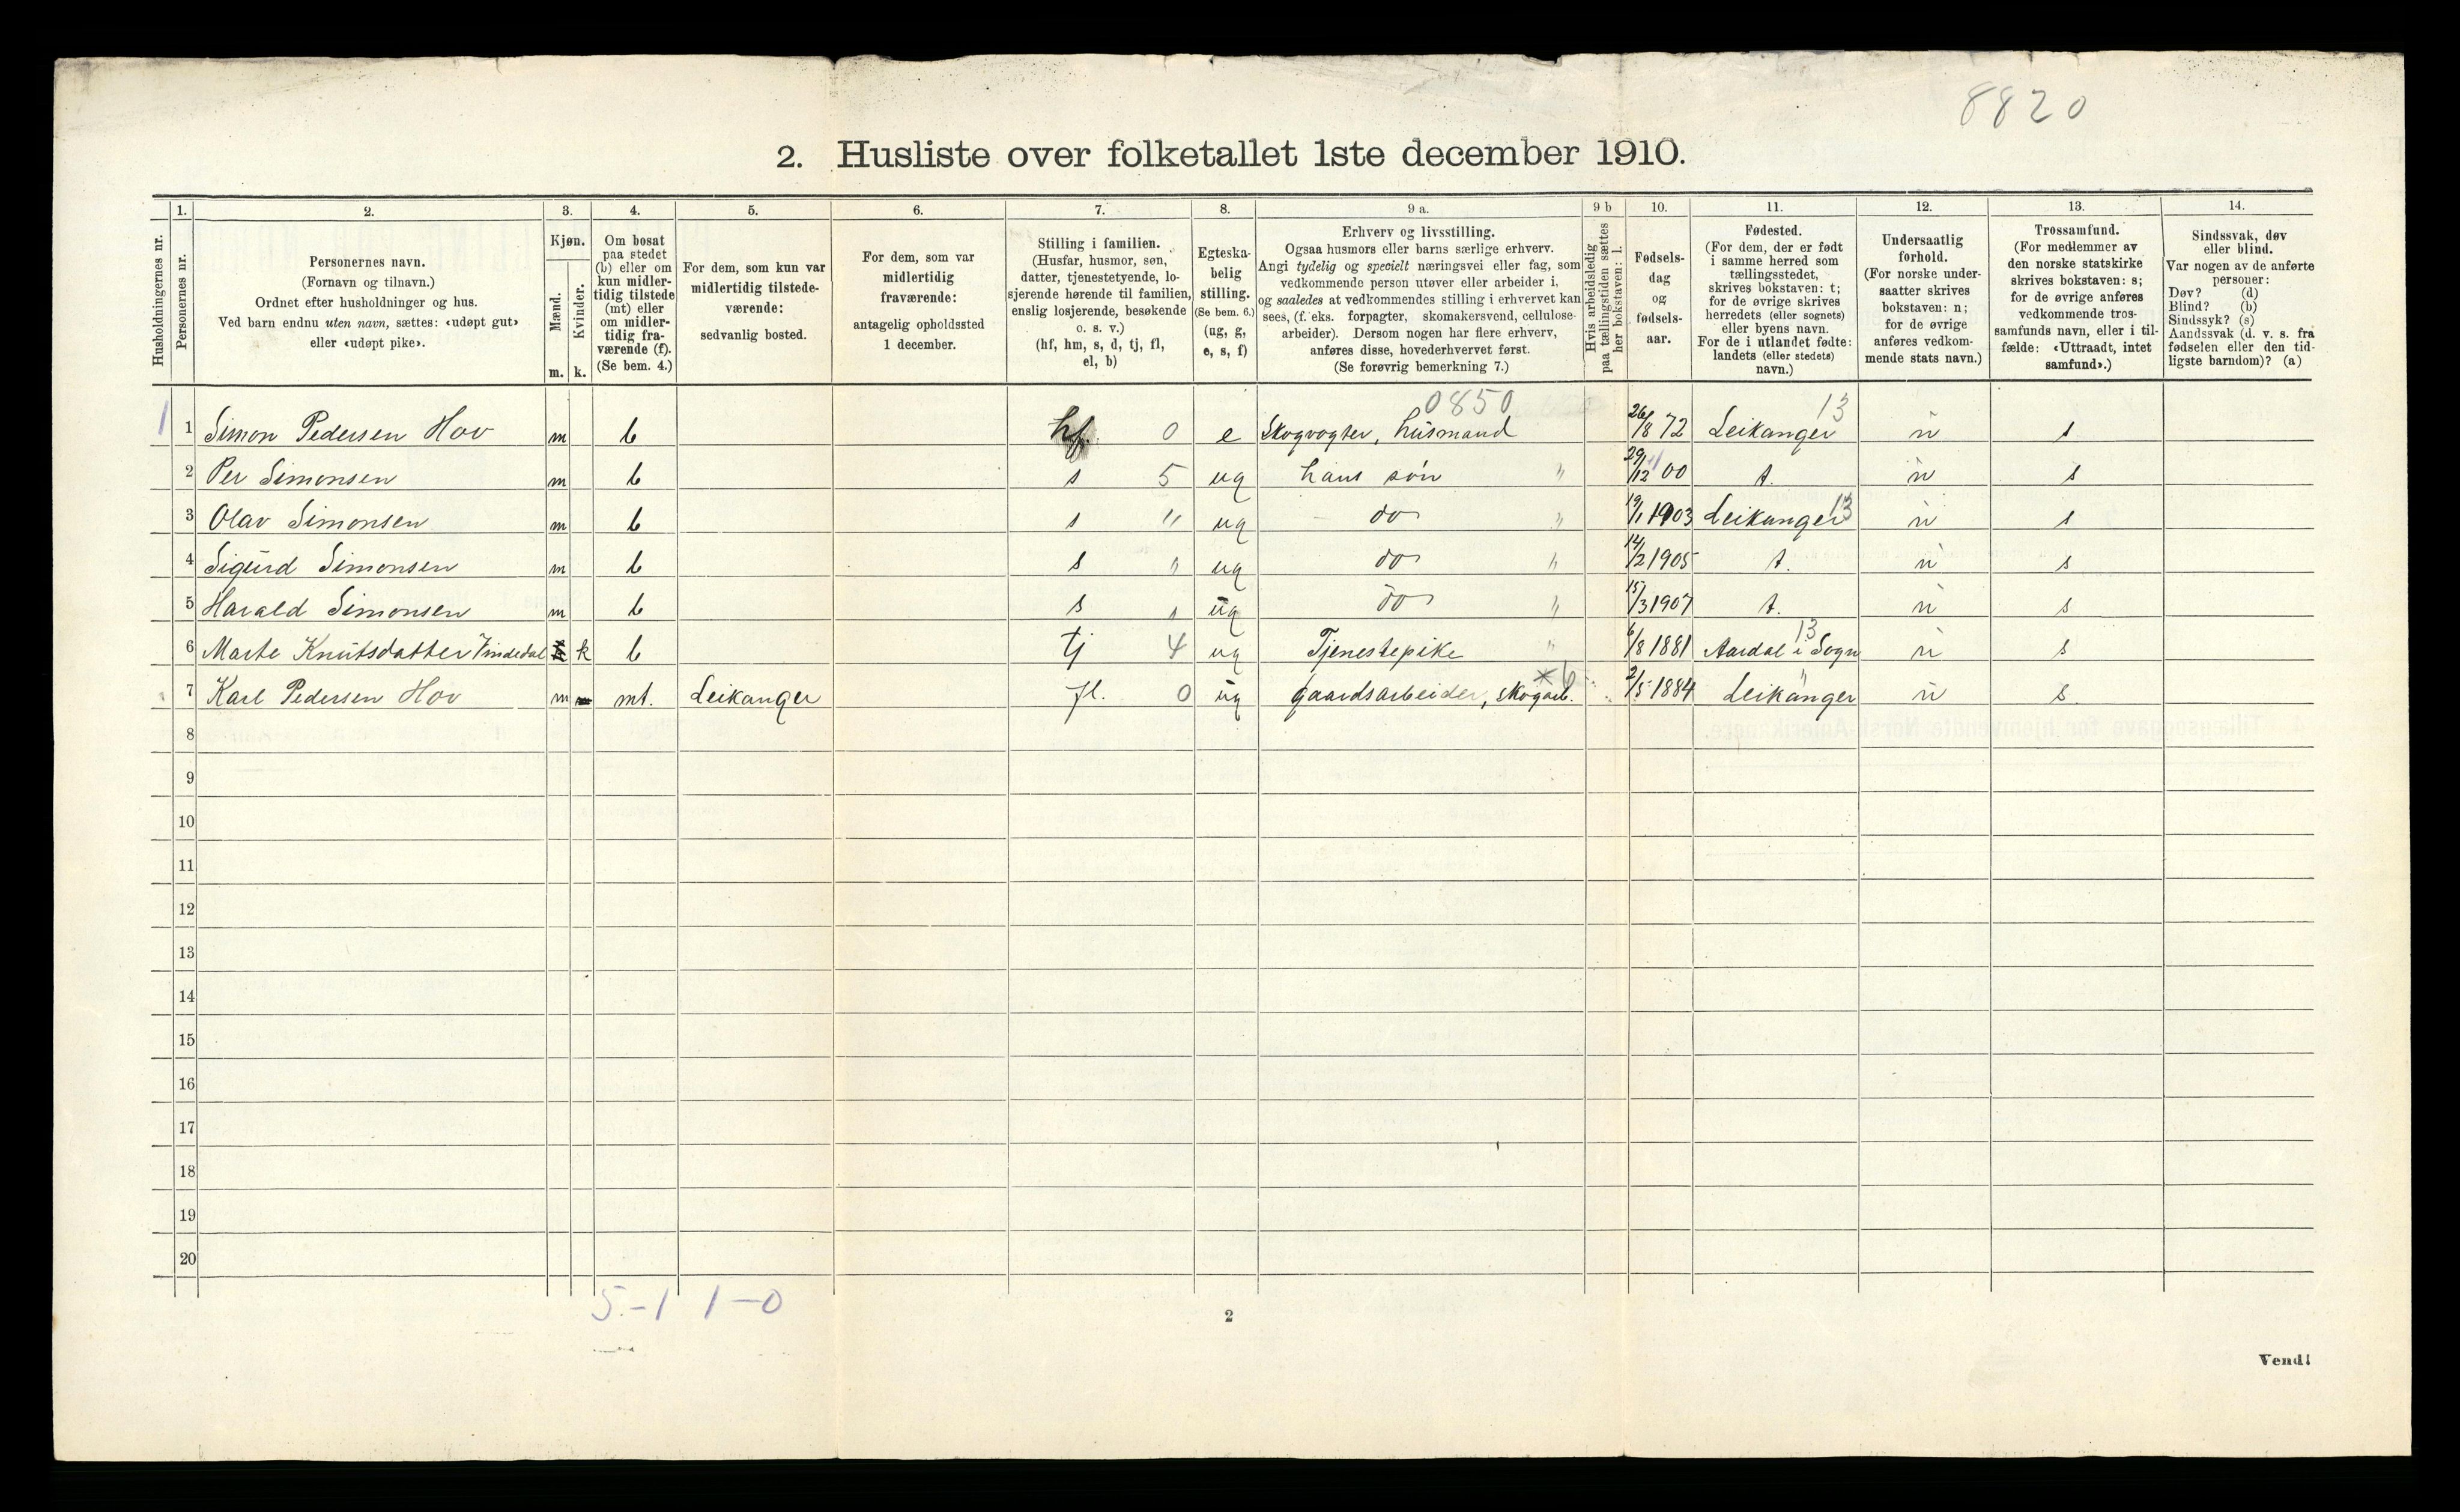 8820
2. Husliste over folketallet 1ste december 1910.
Husholdningernes nr.
1.
Personernes nr.
2.
Personernes navn.
(Fornavn og tilnavn.)
Ordnet efter husholdninger og hus.
Ved barn endnu uten navn, sættes: «udøpt gut»
eller «udøpt pike».
3.
Kjøn.
Mænd.
Kvinder.
m. k.
4.
Om bosat
paa stedet
(b) eller om
kun midler-
tidig tilstede
(mt) eller
om midler-
tidig fra-
værende (f).
(Se bem. 4.)
5.
For dem, som kun var
midlertidig tilstede-
værende:
sedvanlig bosted.
6.
For dem, som var
midlertidig
fraværende:
antagelig opholdssted
1 december.
7.
Stilling i familien.
(Husfar, husmor, søn,
datter, tjenestetyende, lo-
sjerende hørende til familien,
enslig losjerende, besøkende
o. s. v.)
(hf, hm, s, d, tj, fl,
el, b)
8.
Egteska-
belig
stilling.
(Se bem. 6.)
(ug, g,
e, s, f)
9 a.
Erhverv og livsstilling.
Ogsaa husmors eller barns særlige erhverv.
Angi tydelig og specielt næringsvei eller fag, som
vedkommende person utøver eller arbeider i,
og saaledes at vedkommendes stilling i erhvervet kan
sees, (f. eks. forpagter, skomakersvend, cellulose-
arbeider). Dersom nogen har flere erhverv,
anføres disse, hovederhvervet først.
(Se forøvrig bemerkning 7.)
9 b
Hvis arbeidsledig
paa tællingstiden sættes
her bokstaven: l.
10.
Fødsels-
dag
og
fødsels-
aar.
11.
Fødested.
(For dem, der er født
i samme herred som
tællingsstedet,
skrives bokstaven: t;
for de øvrige skrives
herredets (eller sognets)
eller byens navn.
For de i utlandet fødte:
landets (eller stedets)
navn.)
12.
Undersaatlig
forhold.
(For norske under-
saatter skrives
bokstaven: n;
for de øvrige
anføres vedkom-
mende stats navn.)
13.
Trossamfund.
(For medlemmer av
den norske statskirke
skrives bokstaven: s;
for de øvrige anføres
vedkommende tros-
samfunds navn, eller i til-
fælde: «Uttraadt, intet
samfund».)
14.
Sindssvak, døv
eller blind.
Var nogen av de anførte
personer:
Døv? (d)
Blind? (b)
Sindssyk? (s)
Aandssvak (d. v. s. fra
fødselen eller den tid-
ligste barndom)? (a)
0850 13
1 1 Simon Pedersen Hov m b hf. 0 e Skogvogter, husmand 26/8 72 Leikanger n s
2 Per Simonsen m b s 5 ug hans søn " 29/12 00 t. n s
3 Olav Simonsen m b s " ug do " 19/1 1903 Leikanger 13 n s
4 Sigurd Simonsen m b s " ug do " 14/2 1905 t. n s
5 Harald Simonsen m b s " ug do " 15/3 1907 t. n s
6 Marte Knutsdatter Vindedal k b tj 4 ug Tjenestepike " 6/8 1881 Aardal i Sogn 13 n s
7 Karl Pedersen Hov m mt. Leikanger fl. 0 ug gaardsarbeider, skogarb. 2/5 1884 Leikanger " n s
8
9
10
11
12
13
14
15
16
17
18
19
20
5-1 1-0
2
Vend!